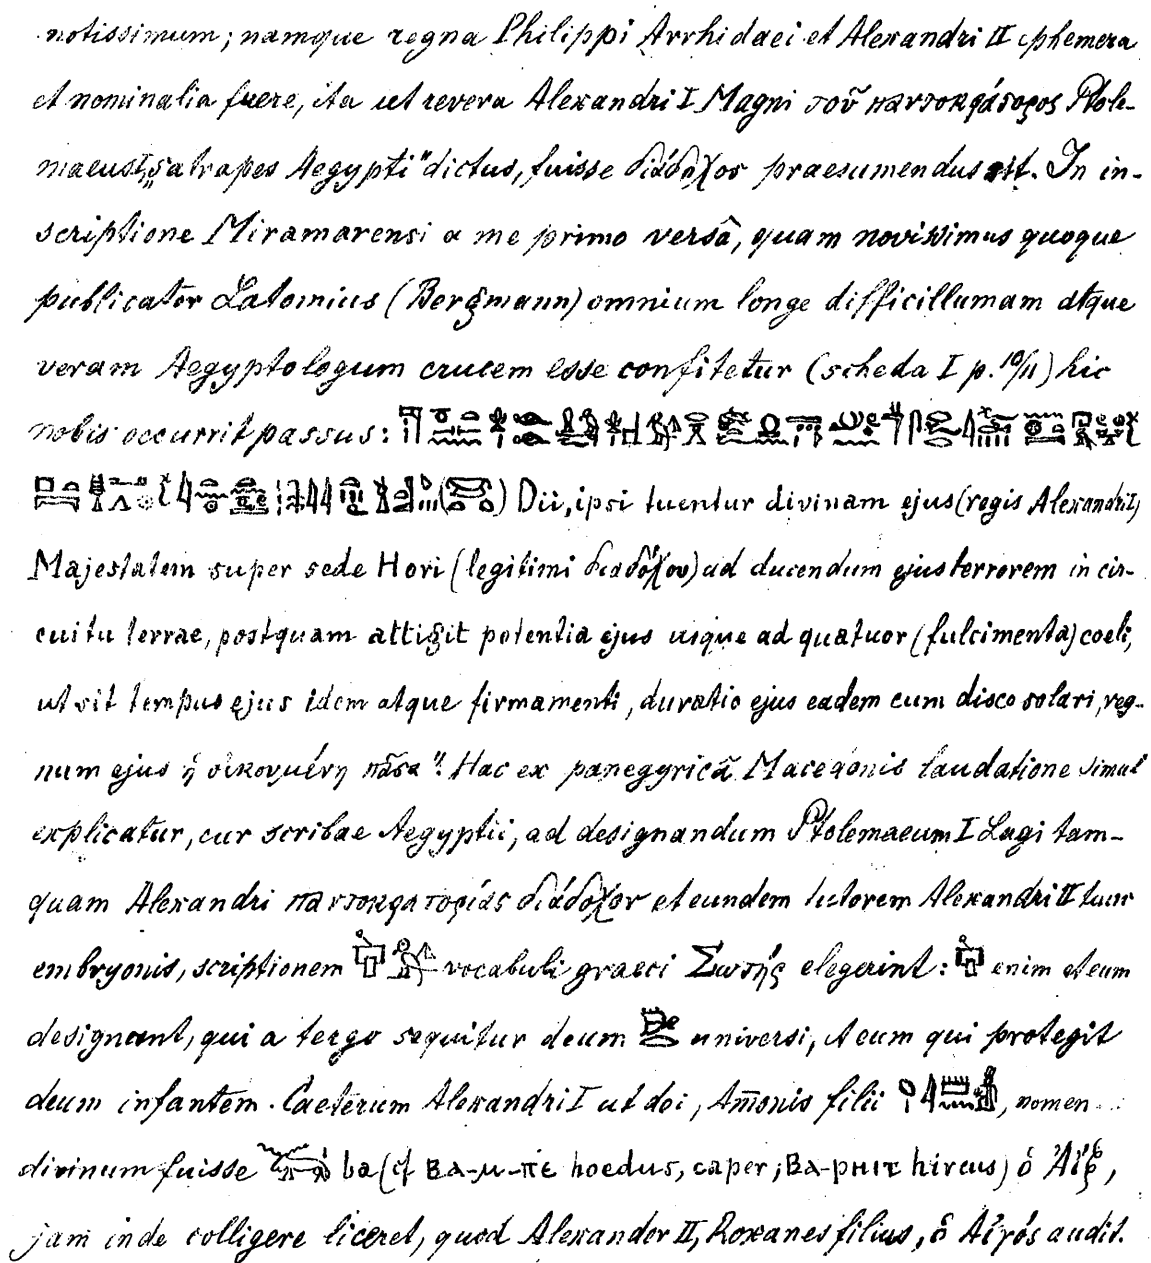 notissimum; namque regna Philippi Arrhidaei et Alexandri II ephemera
et nominalia fuere, ita ut revera Alexandri I Magni τοῦ παντοκράτορος Ptole-
maeus I, „satrapes Aegypti" dictus, fuisse διάδοχος praesumendus sit. In in-
scriptione Miramarensi a me primo versâ, quam novissimus quoque
publicator Latomius (Bergmann) omnium longe difficillumam atque
veram Aegyptologum crucem esse confitetur (scheda I p. 10/11) hic
nobis occurrit passus:
Dii, ipsi tuentur divinam ejus (regis Alexandri I)
Majestatem super sede Hori (legitimi διαδόχου) ad ducendum ejus terrorem in cir-
cuitu terrae, postquam attigit potentia ejus usque ad quatuor (fulcimenta) coeli,
ut sit tempus ejus idem atque firmamenti, duratio ejus eadem cum disco solari, reg-
num ejus ἡ οἰκουμένη πᾶσα". Hac ex panegyricâ Macedonis laudatione simul
explicatur, cur scribae Aegyptii, ad designandum Ptolemaeum I Lagi tam-
quam Alexandri παντοκρατορίας διάδοχον et eundem tutorem Alexandri II tunc
embryonis, scriptionem vocabuli graeci Σωτήρ elegerint: enim et eum
designant, qui a tergo sequitur deum universi, et eum qui protegit
deum infantem. Caeterum Alexandri I ut dei, Amonis filii, nomen
divinum fuisse ba (cf ⲃⲁ-ⲙ-ⲡⲉ hoedus, caper; ⲃⲁ-ⲣⲏⲓⲧ hircus) ὁ Αἴξ,
jam inde colligere liceret, quod Alexander II, Roxanes filius, ὁ Αἰγός audit.